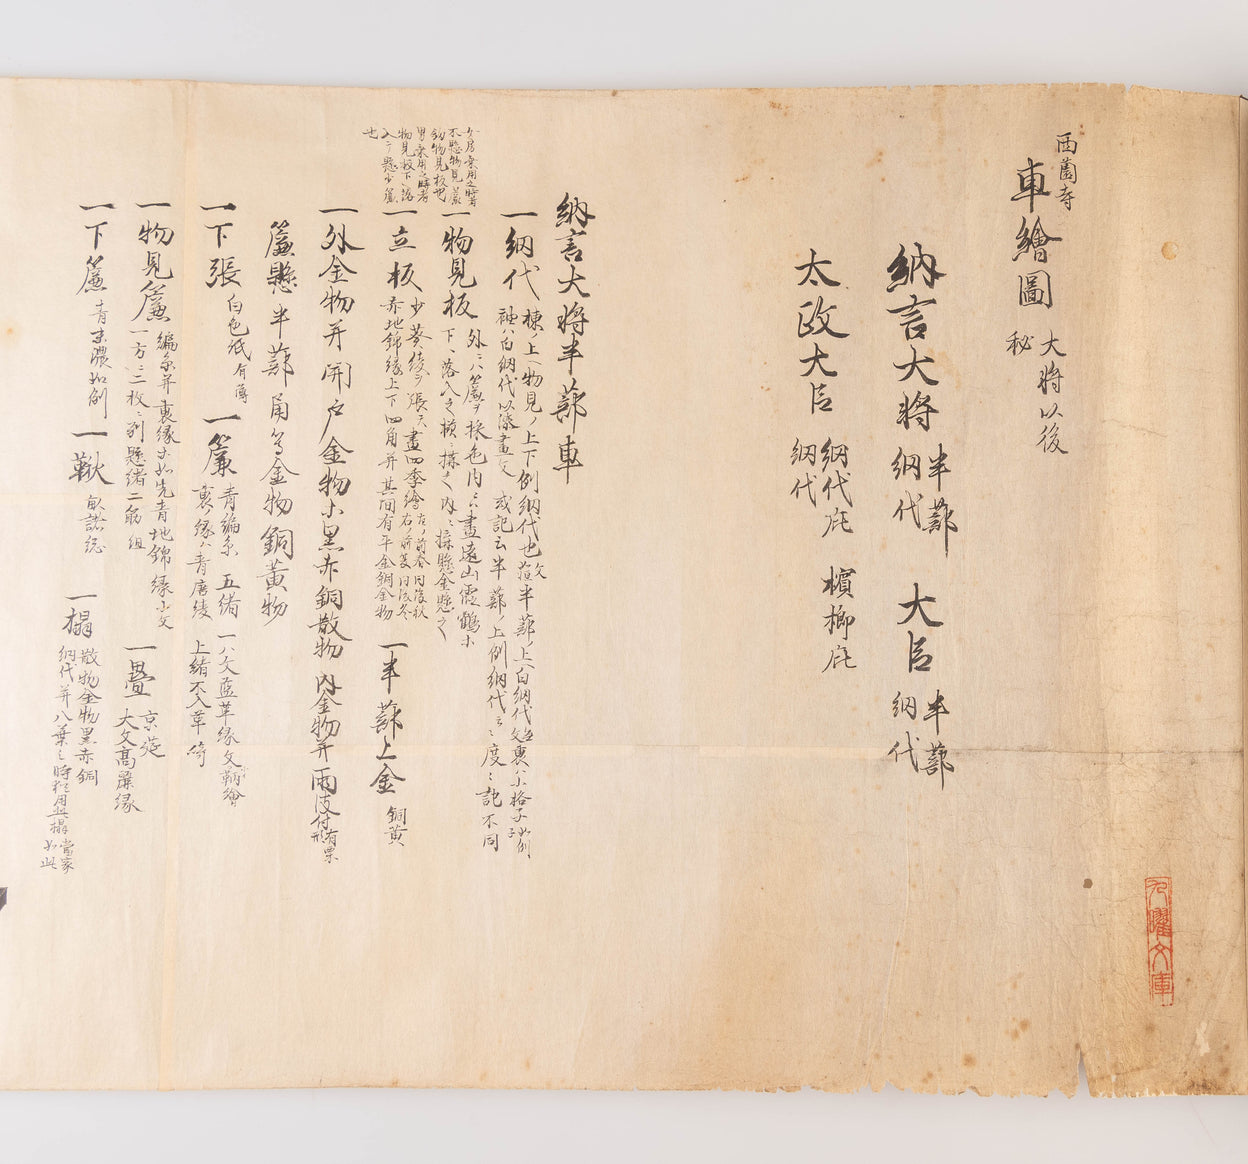 西園寺
車繪圖 大將以後
秘
納言大將 半蔀 網代 大臣 半蔀 網代
太政大臣 網代庇 檳榔庇
網代
納言大將半蔀車
一網代 棟ノ上物見ノ上下例網代也 半蔀ノ上白網代
袖ハ白網代以漆畫文 或記云半蔀ノ上例網代云々 度々記不同
一物見板 外ニハ簾ヲ採色 内ニハ畫遠山霞鶴ホ
下ニ落入之
一立板 張天畫四季繪
赤地錦縁上下四角并其間有平金銅金物
一半蔀上金 銅黄
女房乘用之時者
不懸物見簾
物見板也
男乘用之時者
物見板下ニ落
入テ懸少簾
也
一外金物并開戸金物ホ黒赤銅散物 内金物并雨皮付有票形
簾懸半蔀角等金物銅黄物
一下張 白色紙
一簾 青編糸 五緒 一八文藍革縁文繪
裏ノ縁ハ青唐綾 上緒不入革
一物見簾 編糸并裏縁ホ如先青地錦縁小文
一方ニ二枚ニ 懸緒二筋 組
一疊 京筵
大文高麗縁
一下簾 青末濃如例
一鞦 畝諸総
一榻 散物金物黒赤銅
網代并八葉之時 用此榻 當家如此
九曜文庫